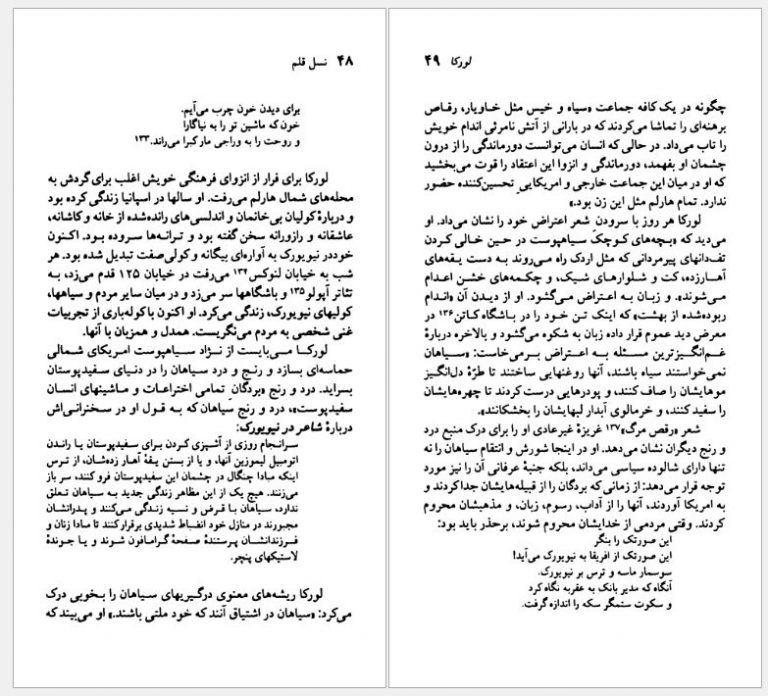 ۴۸ نسل قلم
برای دیدن خون چرب می‌آیم.
خون که ماشین تو را به نیاگارا
و روحت را به وراجی مار کبرا می‌راند.۱۳۳
لورکا برای فرار از انزوای فرهنگی خویش اغلب برای گردش به
محله‌های شمال هارلم می‌رفت. او سالها در اسپانیا زندگی کرده بود
و دربارهٔ کولیان بی‌خانمان و اندلسی‌های رانده‌شده از خانه و کاشانه،
عاشقانه و رازورانه سخن گفته بود و ترانه‌ها سروده بود. اکنون
خود در نیویورک به آواره‌ای بیگانه و کولی‌صفت تبدیل شده بود. هر
شب به خیابان لنوکس۱۳۴ می‌رفت در خیابان ۱۲۵ قدم می‌زد، به
تئاتر آپولو۱۳۵ و باشگاهها سر می‌زد و در میان سایر مردم و سیاهها،
کولیهای نیویورک، زندگی می‌کرد. او اکنون با کوله‌باری از تجربیات
غنی شخصی به مردم می‌نگریست. همدل و همزبان با آنها.
لورکـا مـی‌بایست از نژاد سیـاهپوست امریکای شمالی
حماسه‌ای بسازد و رنج و درد سیاهان را در دنیای سفیدپوستان
بسراید. درد و رنج «بردگانِ تمامی اختراعات و ماشینهای انسان
سفیدپوست»، درد و رنج سیاهان که به قول او در سخنرانی‌اش
دربارهٔ شاعر در نیویورک:
سرانجام روزی از آشپزی کردن برای سفیدپوستان یا راندن
اتومبیل لیموزین آنها، و یا از بستن یقهٔ آهار زده‌شان، از ترس
اینکه مبادا چنگال در چشمان این سفیدپوستان فرو کنند، سر باز
می‌زنند. هیچ یک از این مظاهر زندگی جدید به سیاهان تعلق
ندارد، سیاهان با قرض و نسیه زندگی می‌کنند و پدرانشان
مجبورند در منازل خود انضباط شدیدی برقرار کنند تا مبادا زنان و
فرزندانشان پرستندهٔ صفحهٔ گرامافون شوند و یا جوندهٔ
لاستیکهای پنچر.
لورکا ریشه‌های معنوی درگیریهای سیاهان را بخوبی درک
می‌کرد: «سیاهان در اشتیاق آنند که خود ملتی باشند.» او می‌بیند که
لورکا ۴۹
چگونه در یک کافه جماعت «سیاه و خیس مثل خاویار، رقاص
برهنه‌ای را تماشا می‌کردند که در بارانی از آتش نامرئی اندام خویش
را تاب می‌داد. در حالی که انسان می‌توانست دورماندگی را از درون
چشمان او بفهمد، دورماندگی و انزوا این اعتقاد را قوت می‌بخشید
که او در میان این جماعت خارجی و امریکاییِ تحسین‌کننده حضور
ندارد. تمام هارلم مثل این زن بود.»
لورکا هر روز با سرودن شعر اعتراض خود را نشان می‌داد. او
می‌دید که «بچه‌های کوچک سیاهپوست در حین خالی کردن
تفدانهای پیرمردانی که مثل اردک راه می‌روند به دست یقه‌های
آهارزده، کت و شلوارهای شیک، و چکمه‌های خشن اعدام
می‌شوند». و زبان به اعتراض می‌گشود. او از دیدن آن «اندام
ربوده‌شده از بهشت» که اینک تن خود را در باشگاه کاتن۱۳۶ در
معرض دید عموم قرار داده زبان به شکوه می‌گشود و بالاخره دربارهٔ
غم‌انگیزترین مسئله به اعتراض برمی‌خاست: «سیاهان
نمی‌خواستند سیاه باشند، آنها روغنهایی ساختند تا طرّهٔ دل‌انگیز
موهایشان را صاف کنند، و پودرهایی درست کردند تا چهره‌هایشان
را سفید کنند، و خرمالوی آبدار لبهایشان را بخشکانند».
شعر «رقص مرگ»۱۳۷ غریزهٔ غیرعادی او را برای درک منبع درد
و رنج دیگران نشان می‌دهد. او در اینجا شورش و انتقام سیاهان را نه
تنها دارای شالوده سیاسی می‌داند، بلکه جنبهٔ عرفانی آن را نیز مورد
توجه قرار می‌دهد: از زمانی که بردگان را از قبیله‌هایشان جدا کردند و
به امریکا آوردند، آنها را از آداب، رسوم، زبان، و مذهبشان محروم
کردند. وقتی مردمی از خدایشان محروم شوند، برحذر باید بود:
این صورتک را بنگر
این صورتک از افریقا به نیویورک می‌آید!
سوسمار ماسه و ترس بر نیویورک.
آنگاه که مدیر بانک به عقربه نگاه کرد
و سکوت ستمگر سکه را اندازه گرفت.